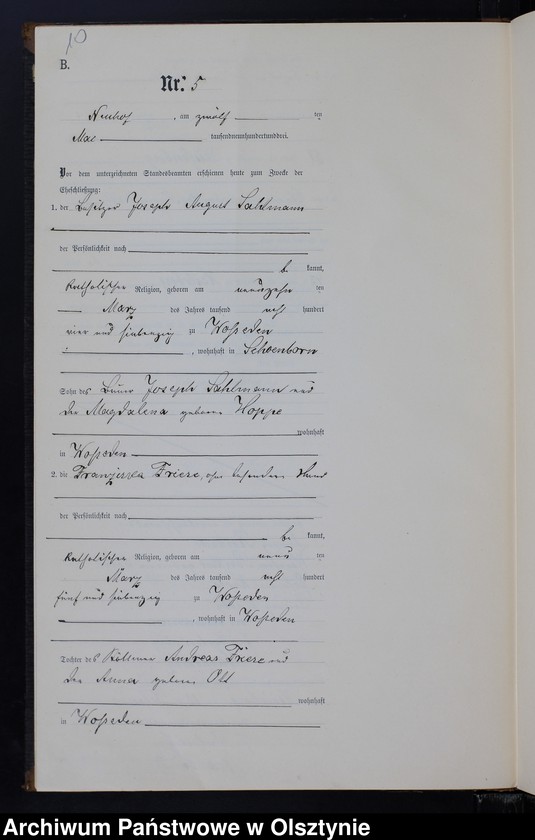 10
B.
Nr. 5
Neuhof, am zwölf ten
Mai tausendneunhundertunddrei.
Vor dem unterzeichneten Standesbeamten erschienen heute zum Zwecke der
Eheschließung:
1. der Besitzer Joseph August Sahlmann
der Persönlichkeit nach
be kannt,
katholischer Religion, geboren am neunzehn ten
März des Jahres tausend acht hundert
vier und siebenzig zu Wosseden
, wohnhaft in Schoenborn
Sohn des Bauer Joseph Sahlmann und
der Magdalena geborene Hoppe
wohnhaft
in Wosseden
2. die Franziska Friese, ohne besonderen Stand
der Persönlichkeit nach
be kannt,
katholischer Religion, geboren am neun ten
März des Jahres tausend acht hundert
fünf und siebenzig zu Wosseden
, wohnhaft in Wosseden
Tochter des Köllmer Andreas Friese und
der Anna geborene Ott
wohnhaft
in Wosseden
Archiwum Państwowe w Olsztynie